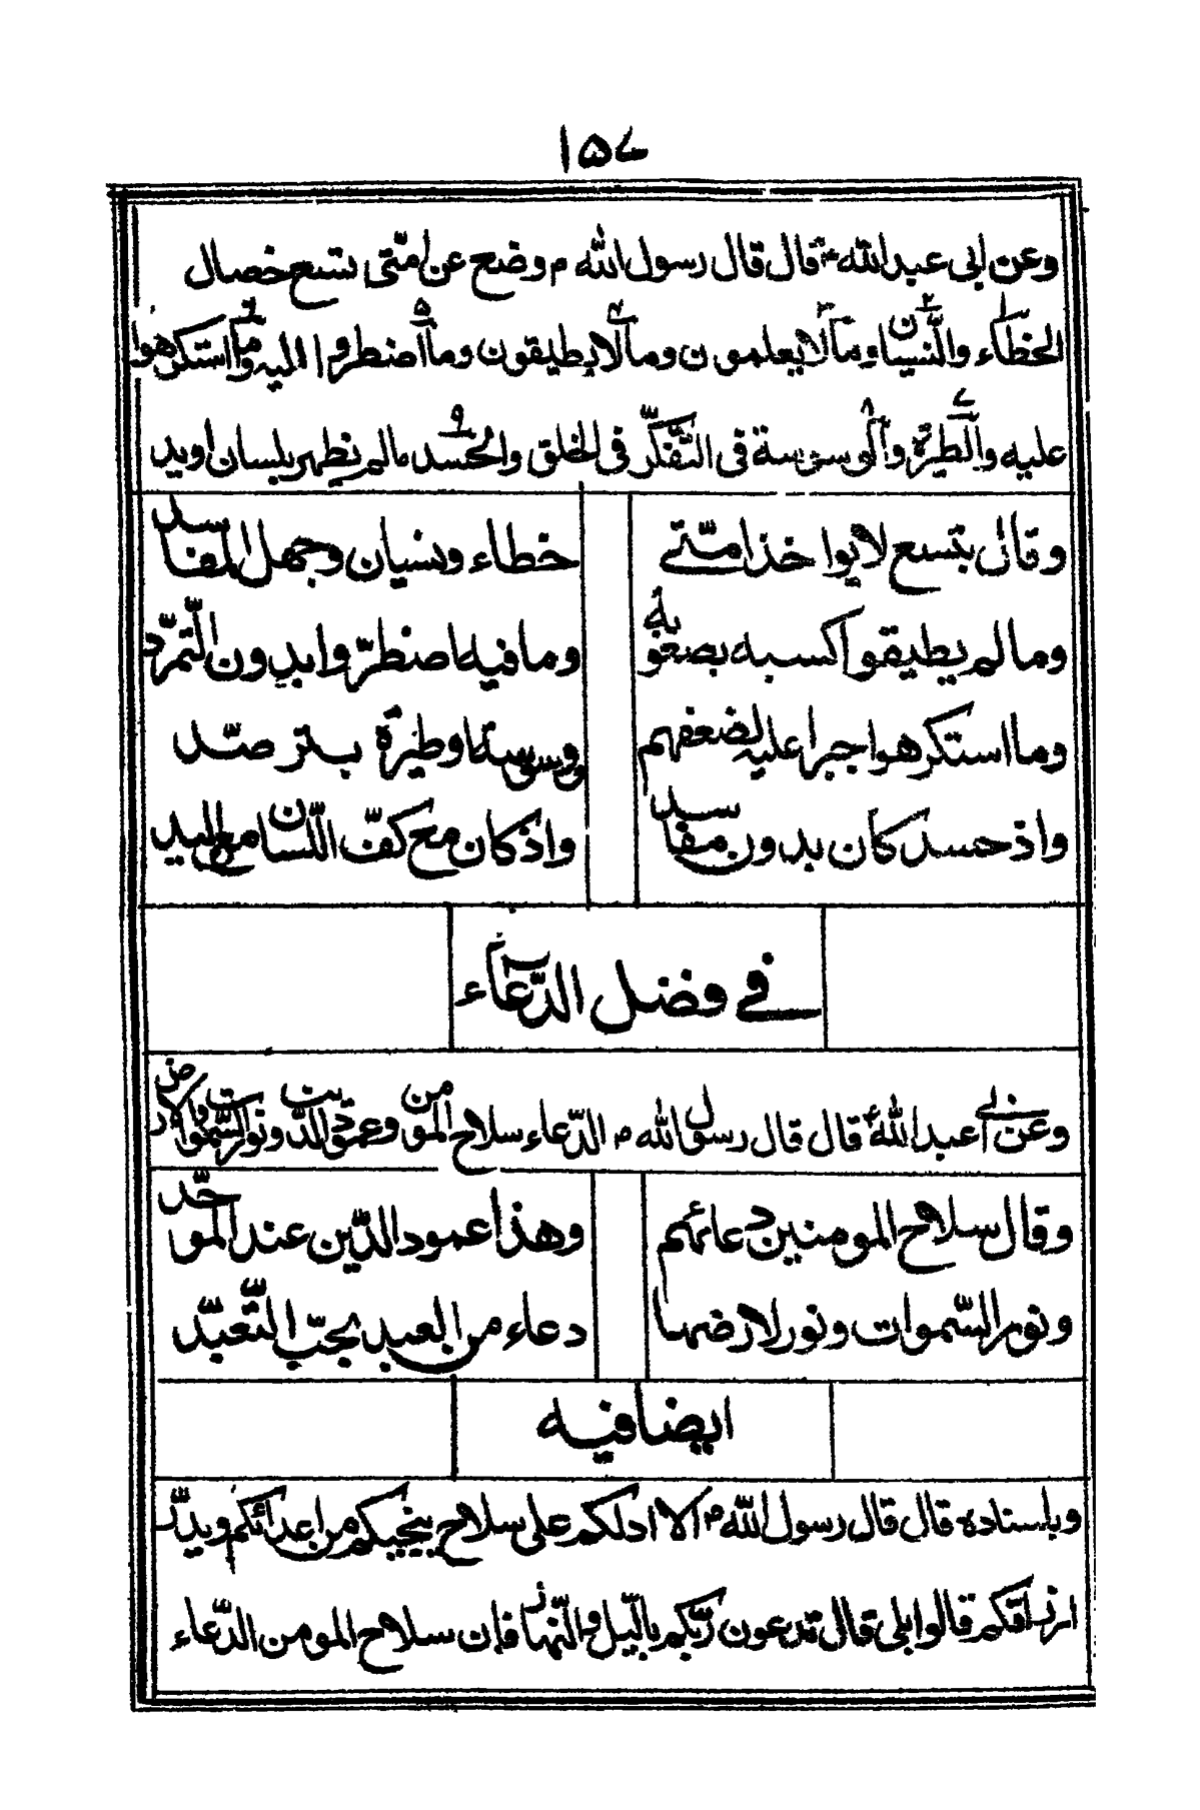 ١٥٧
وعن ابى عبدالله ع قال قال رسول الله م وضع عن امّتى تسع خصال
الخطاء والنّسيان وما لا يعلمون وما لا يطيقون وما اضطروا اليه وما استكرهوا
عليه والطيرة والوسوسة فى التّفكّر فى الخلق والحسد مالم يظهر بلسان اويد
وقال بتسع لا يواخذ امّتى خطاء ونسيان وجهل المفاسد
ومالم يطيقوا كسبه بصعوبة وما فيه اضطرّوا بدون التّمرّد
وما استكرهوا جبرا عليه لضعفهم ووسوسة اوطيرة بتر صّد
واذ حسد كان بدون مفاسد واذ كان مع كفّ اللّسان مع اليد
فى فضل الدّعاء
وعن ابى عبدالله ع قال قال رسول الله م الدّعاء سلاح المومن وعمود الدّين ونور السّموات والارض
وقال سلاح المومنين دعائهم وهذا عمود الدّين عند الموحّد
ونور السّموات ونور لارضها دعاء من العبد بحبّ التّعبّد
ايضا فيه
وباسناده قال قال رسول الله م الا ادلكم على سلاح ينجيكم من اعدائكم ويدرّ
ارزاقكم قالوا بلى قال تدعون ربّكم باللّيل والنّهار فان سلاح المومن الدّعاء